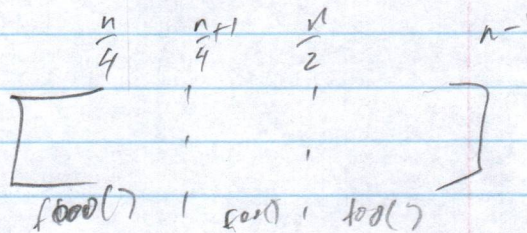 n/4 n/4+1 n/2 n-
foo() foo()